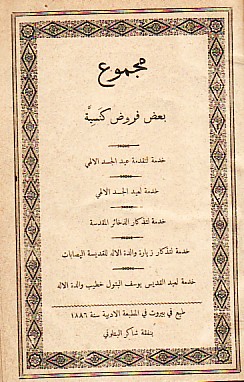 مجموع
بعض فروض كنسيَّة
خدمة لتقدمة عيد الجسد الالهي
خدمة لعيد الجسد الالهي
خدمة لتذكار الذخائر المقدسة
خدمة لتذكار زيارة والدة الاله للقديسة اليصابات
خدمة لعيد القديس يوسف البتول خطيب والدة الاله
طبع في بيروت في المطبعة الادبية سنة ١٨٨٦
بنفقة شاكر البتلوني